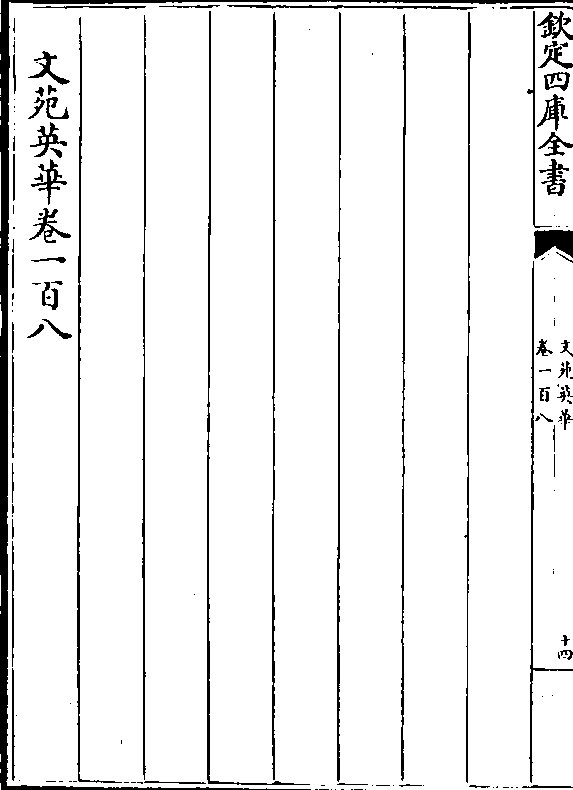 欽定四庫全書
文苑英華
卷一百八
十四
文苑英華卷一百八